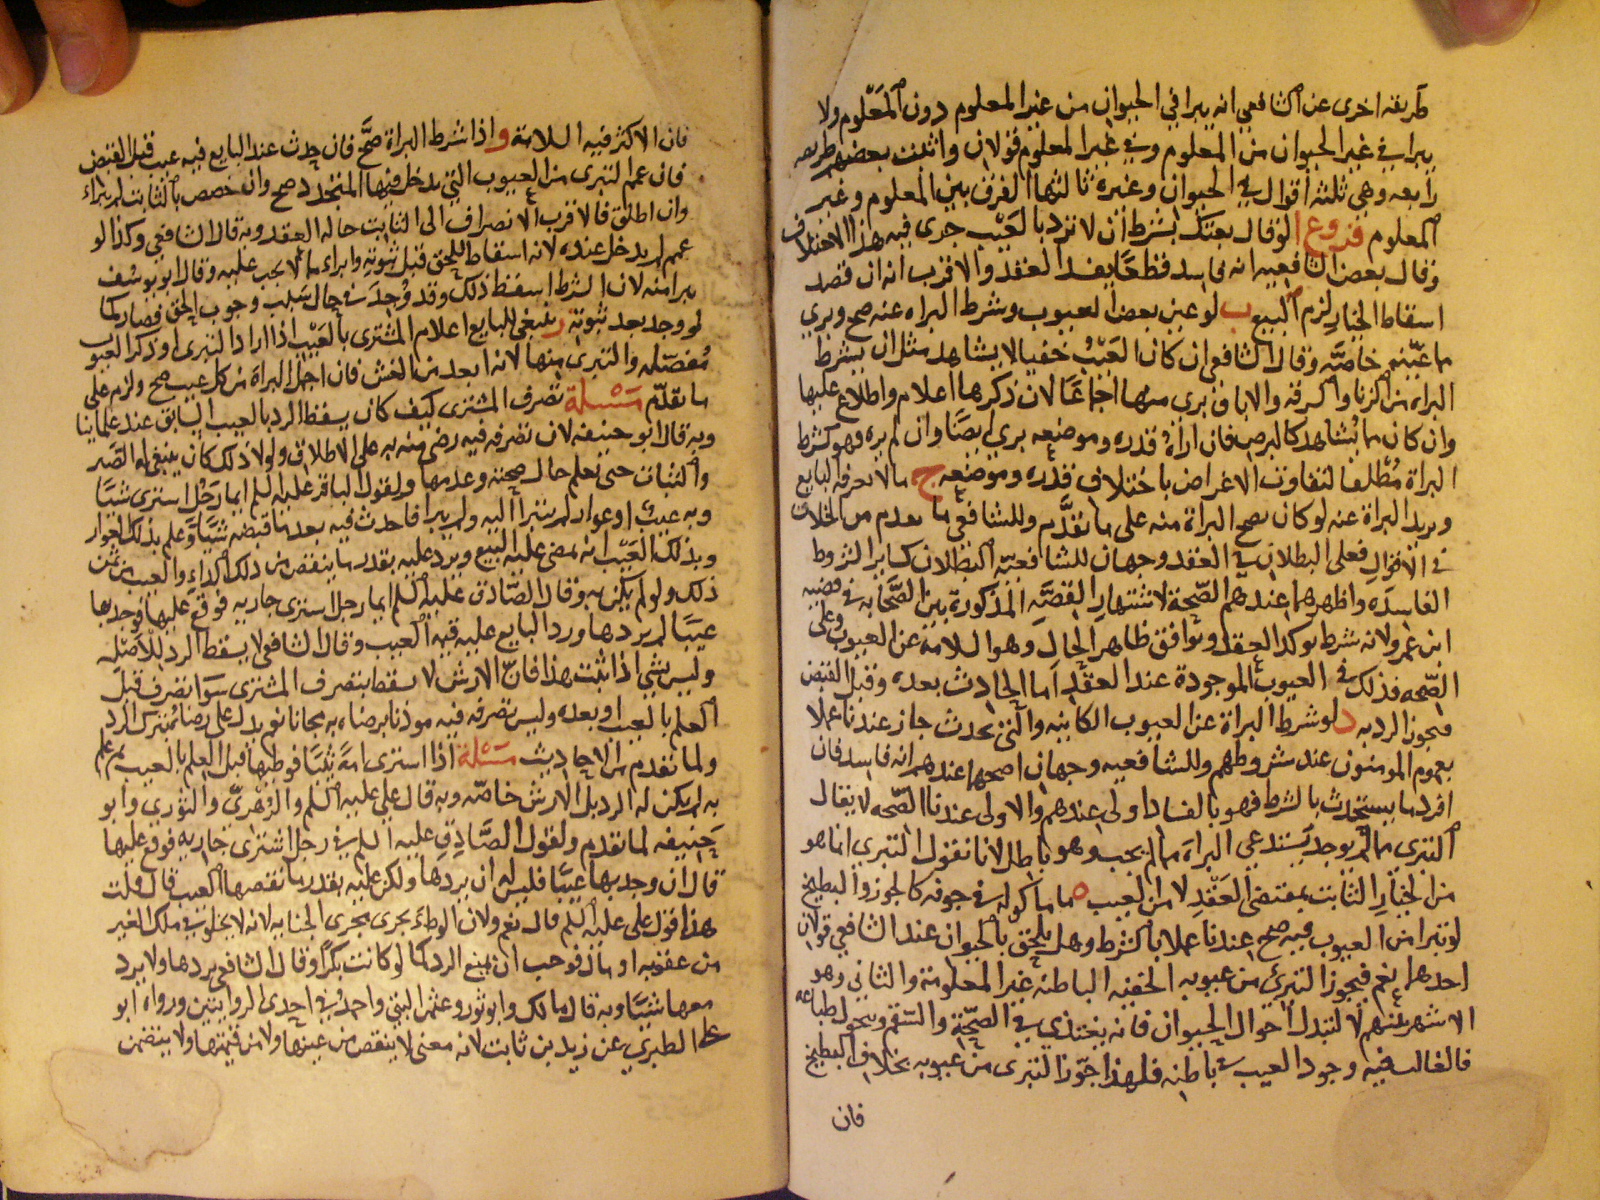 طريقه اخرى عن الشافعي انه يبرا في الحيوان من غير المعلوم دون المعلوم ولا
يبرا في غير الحيوان من المعلوم وفي غير المعلوم قولان واثبت بعضهم طريقه
رابعه وهي ثلثه اقوال في الحيوان وغيره ثالثها الفرق بين المعلوم وغير
المعلوم فروع ا لو قال بعتك بشرط ان لا ترد بالعيب جرى فيه هذا الاختلاف
وقال بعض الشافعيه انه فاسد قطعا يفسد العقد والاقرب انه ان قصد
اسقاط الخيار لزم البيع ب لو عين بعض العيوب وشرط البراه عنه صح وبري
مما عينه خاصه وقال الشافعي ان كان العيب خفيا لا يشاهد مثل ان يشرط
البراه من الزنا والسرقه والاباق بري منها اجماعا لان ذكرها اعلام واطلاع عليها
وان كان مما يشاهد كالبرص فان اراه قدره وموضعه بري ايضا وان لم يره فهو كشرط
البراة مطلقا لتفاوت الاغراض باختلاف قدره وموضعه ج ما لا يعرفه البايع
ويريد البراة عنه لو كان يصح البراة منه على ما تقدم وللشافعي ما تقدم من الخلاف
في الاقوال فعلى البطلان في العقد وجهان للشافعيه البطلان كساير الشروط
الفاسده واظهرهما عندهم الصحة لاشتهار القصه المذكورة بين الصحابه في قضيه
ابن عمر ولانه شرط يوكد العقد ويوافق ظاهر الحال وهو السلامة عن العيوب وعلى
الصحه فذلك في العيوب الموجودة عند العقد اما الحادث بعده وقبل القبض
فيجوز الرد به د لو شرط البراة عن العيوب الكاينه والتي تحدث جاز عندنا عملا
بعموم المومنون عند شروطهم وللشافعيه وجهان اصحهما عندهم انه فاسد فان
افرد ما يستحدث بالشرط فهو بالفساد اولى عندهم والاولى عندنا الصحه لا يقال
التبري مما لم يوجد يستدعي البراة مما لم يجب وهو باطل لانا نقول التبري انما هو
من الخيار الثابت بمقتضى العقد لا من العيب ه ما ماكوله في جوفه كالجوز والبطيخ
لو تبرا من العيوب فيه صح عندنا عملا بالشرط وهل يلحق بالحيوان عند الشافعي قولان
احدهما نعم فيجوز التبري من عيوبه الخفيه الباطنه غير المعلومة والثاني وهو
الاشهر عنهم لا لتبدل احوال الحيوان فانه يغتذي في الصحة والسقم ويحول طباعه
فالغالب فيه وجود العيب في باطنه فلهذا جوز التبري من عيوبه بخلاف البطيخ
فان
فان الاكثر فيه السلامة و اذا شرط البراة صح فان حدث عند البايع فيه عيب قبل القبض
فان عمم التبري من العيوب التي يدخل فيها المتجدد صح وان خصص بالثابت لم يبراء
وان اطلق فالاقرب الانصراف الى الثابت حاله العقد وبه قال الشافعي وكذا لو
عمم لم يدخل عنده لانه اسقاط للحق قبل ثبوته وابراء مما لا يجب عليه وقال ابو يوسف
يبرا منه لان الشرط اسقط ذلك وقد وجد في حال سبب وجوب الحق فصار كما
لو وجد بعد ثبوته ز ينبغي للبايع اعلام المشتري بالعيب اذا اراد التبري او ذكر العيوب
مفصله والتبري منها لانه ابعد من الغش فان اجمل البراة من كل عيب صح ولزم على
ما تقدم مسئلة تصرف المشتري كيف كان يسقط الرد بالعيب السابق عند علماينا
وبه قال ابو حنيفه لان تصرفه فيه رضى منه به على الاطلاق ولولا ذلك كان ينبغي له الصبر
والثبات حتى يعلم حال صحته وعدمها ولقول الباقر عليه السلم ايما رجل اشترى شيئا
وبه عيب او عوار لم يتبرا اليه ولم يبرا فاحدث فيه بعد ما قبضه شيئا وعلم بذلك العوار
وبذلك العيب انه يمضى عليه البيع ويرد عليه بقدر ما ينقص من ذلك الداء والعيب من ثمن
ذلك ولو لم يكن به وقال الصادق عليه السلم ايما رجل اشترى جاريه فوقع عليها فوجد بها
عيبا لم يردها ورد البايع عليه قيمه العيب وقال الشافعي لا يسقط الرد للاصل
وليس بشي اذا ثبت هذا فان الارش لا يسقط بتصرف المشتري سوا تصرف قبل
العلم بالعيب او بعده وليس تصرفه فيه موذنا برضاه به مجانا نعم يدل على رضاه بترك الرد
ولما تقدم من الاحاديث مسئلة اذا اشترى امة ثيبا فوطيها قبل العلم بالعيب ثم علم
به لم يكن له الرد بل الارش خاصه وبه قال علي عليه السلم والزهري والثوري وابو
حنيفه لما تقدم ولقول الصادق عليه السلم في رجل اشترى جاريه فوقع عليها
قال ان وجد بها عيبا فليس له ان يردها ولكن عليه بقدر ما نقصها العيب قال قلت
هذا قول علي عليه السلم قال نعم ولان الوطء يجرى مجرى الجنايه لانه لا يخلو في ملك الغير
من عقوبه او مال فوجب ان يمنع الرد كما لو كانت بكرا وقال الشافعي يردها ولا يرد
معها شيئا وبه قال مالك وابو ثور وعثمن البتي واحمد في احدى الروايتين ورواه ابو
علي الطبري عن زيد بن ثابت لانه معنى لا ينقص من عينها ولا من قيمتها ولا يتضمن